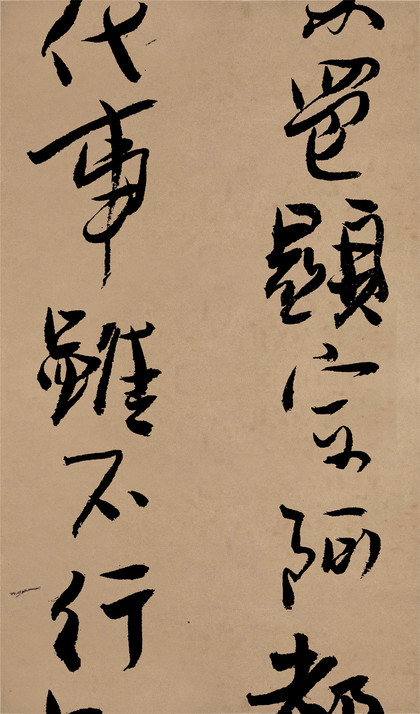 邕顯宗阿都
代事雖不行